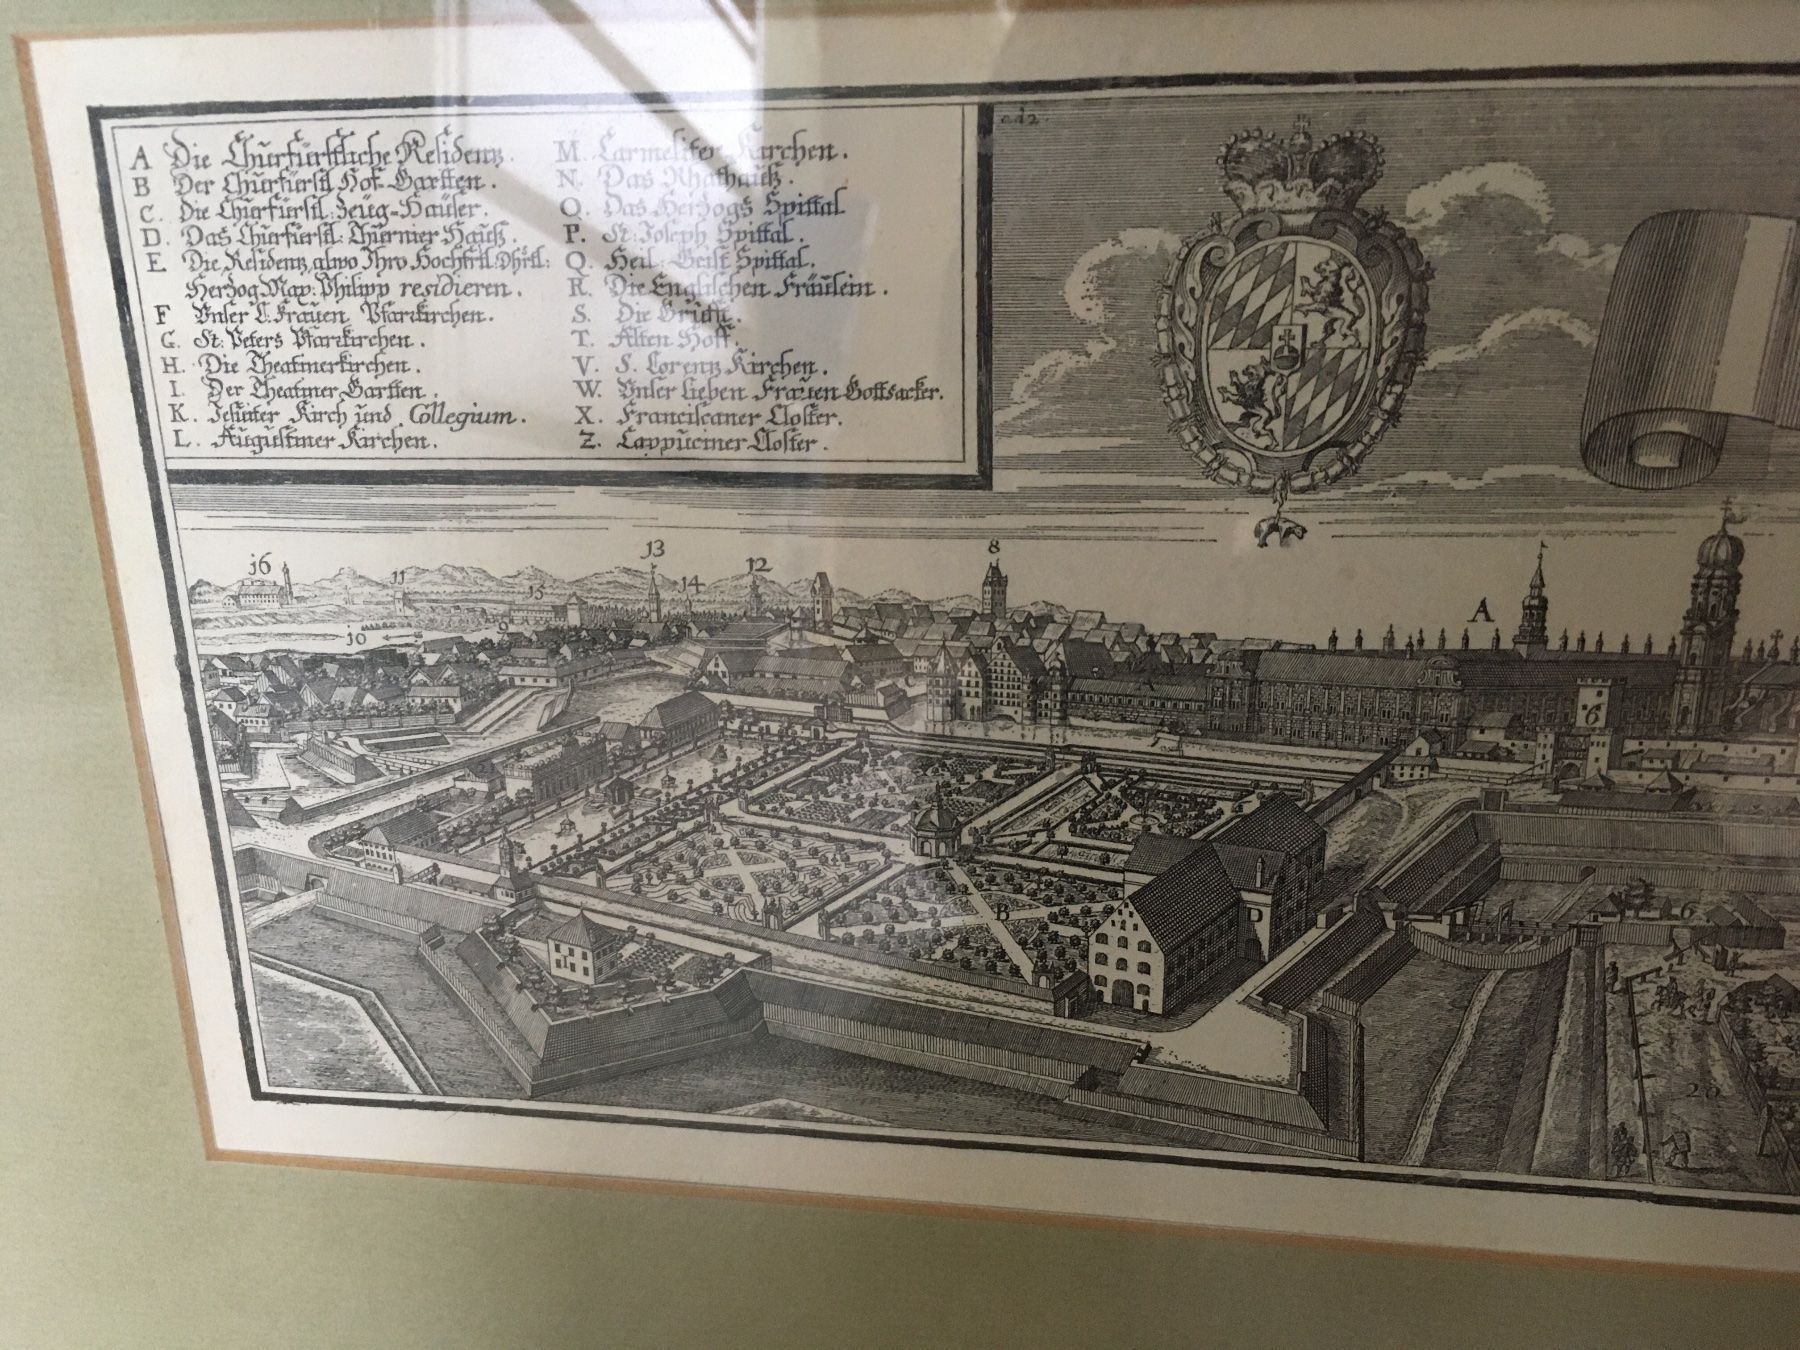 A Die Churfürstliche Residenz.
B Der Churfürstl Hof-Gartten.
C. Die Churfürstl: Zeüg-Haüser.
D. Das Churfürstl: Thurnier Hauß.
E Die Residenz, alwo Ihro Hochfrtl. Dhrtl:
Herzog Max: Philipp residieren.
F Unser L. Frauen Pfarrkirchen.
G. St: Peters Pfarrkirchen.
H. Die Theatinerkirchen.
I. Der Theatiner Gartten.
K. Jesuiter Kirch und Collegium.
L. Augustiner Kirchen.
M. Carmeliter Kirchen.
N. Das Rhathauß.
O. Das Herzogs Spittal
P. St: Joseph Spittal.
Q. Heil: Geist Spittal.
R. Die Englischen Fräulein.
S. Die Grufft.
T. Alten Hoff.
V. S. Lorenz Kirchen.
W. Unser lieben Frauen Gottsacker.
X. Franciscaner Closter.
Z. Cappuciner Closter.
ad 2.
16
11
15
13
14
12
8
10
9
A
C
6
B
D
I
6
28